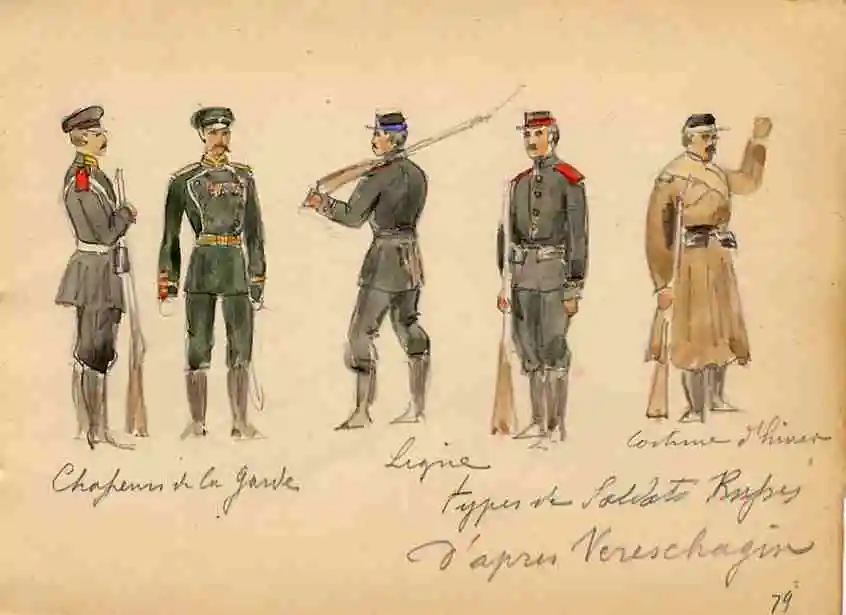 Chasseurs de la Garde
Ligne
Costume d'hiver
types de Soldats Russes
d'apres Vereschagin
79